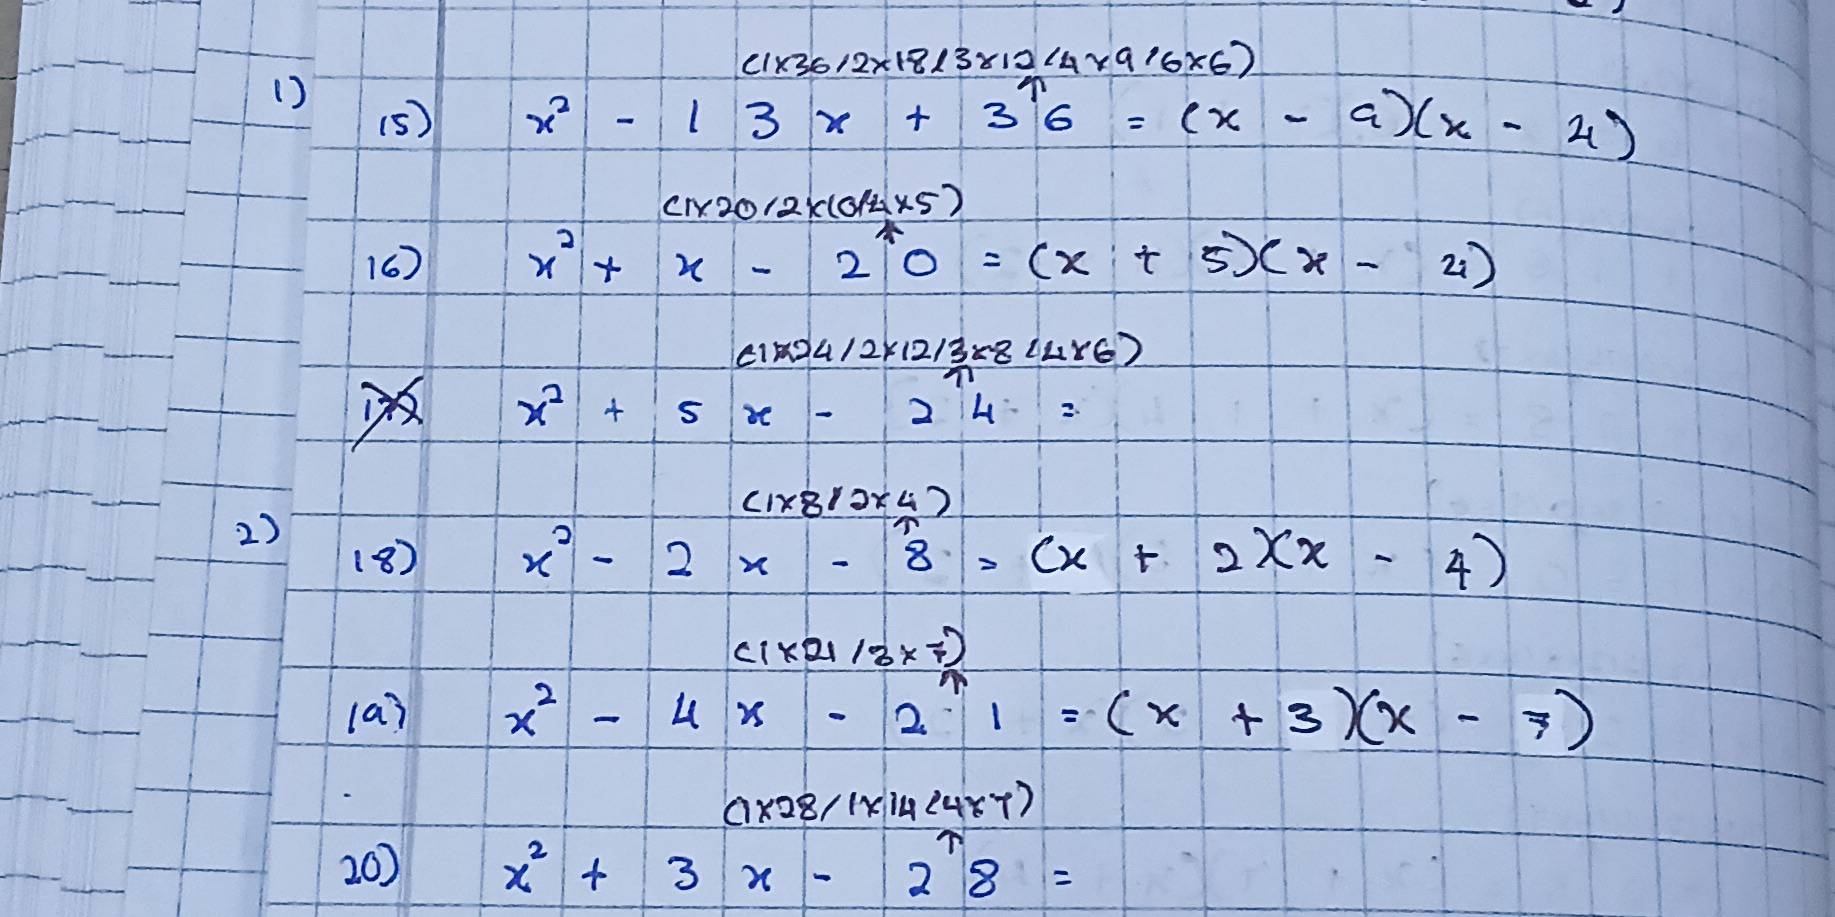 (1x36/2x18/3x12/4x9/6x6)
1) 15) x² - 13x + 36 = (x - 9)(x - 4)
(1x20/2x10/4x5)
16) x² + x - 20 = (x + 5)(x - 4)
(1x24/2x12/3x8/4x6)
x² + 5x - 24 =
(1x8/2x4)
2) 18) x² - 2x - 8 = (x + 2)(x - 4)
(1x21/3x7)
19) x² - 4x - 21 = (x + 3)(x - 7)
(1x28/1x14/4x7)
20) x² + 3x - 28 =